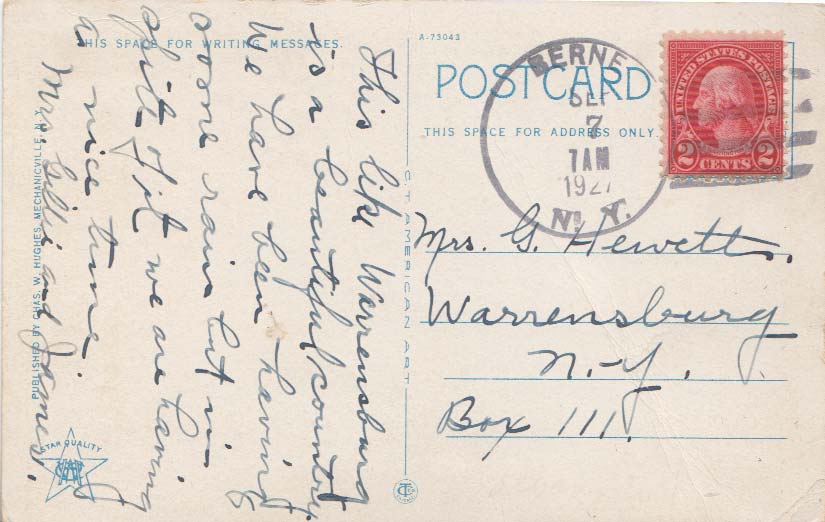 THIS SPACE FOR WRITING MESSAGES.
This like Warrensburg
is a beautiful country.
We have been having
some rain but in
spite of it we are having
a nice time
Mrs. Gilli and James.
PUBLISHED BY CHAS. W. HUGHES, MECHANICVILLE, N.Y.
STAR QUALITY
C.T. AMERICAN ART
A-73043
POST CARD
THIS SPACE FOR ADDRESS ONLY.
BERNE
SEP
7
7AM
1927
N.Y.
UNITED STATES POSTAGE
2 CENTS 2
Mrs. G. Hewett.
Warrensburg
N.Y.
Box 111.